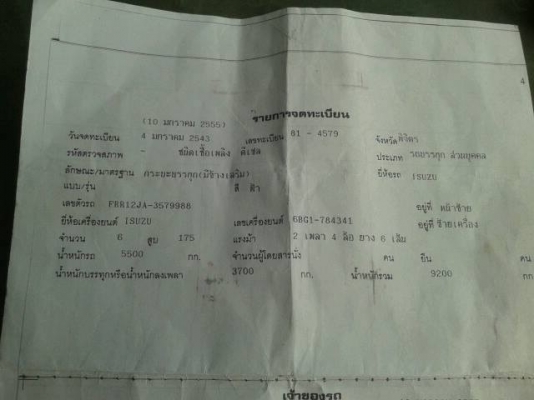 4
(10 มกราคม 2555) รายการจดทะเบียน
วันจดทะเบียน 4 มกราคม 2543 เลขทะเบียน 81 - 4579 จังหวัด พิจิตร
รหัสตรวจสภาพ - ชนิดเชื้อเพลิง ดีเซล ประเภท รถบรรทุก ส่วนบุคคล
ลักษณะ/มาตรฐาน กระบะบรรทุก(มีข้างเสริม) ยี่ห้อรถ ISUZU
แบบ/รุ่น สี ฟ้า
เลขตัวรถ FRR12JA-3579988 อยู่ที่ หน้าซ้าย
ยี่ห้อเครื่องยนต์ ISUZU เลขเครื่องยนต์ 6BG1-784341 อยู่ที่ ซ้ายเครื่อง
จำนวน 6 สูบ 175 แรงม้า 2 เพลา 4 ล้อ ยาง 6 เส้น
น้ำหนักรถ 5500 กก. จำนวนผู้โดยสารนั่ง คน ยืน คน
น้ำหนักบรรทุกหรือน้ำหนักลงเพลา 3700 กก. น้ำหนักรวม 9200 กก
เจ้าของรถ